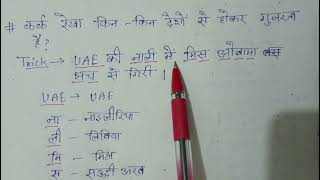 # कर्क रेखा किन-किन देशों से होकर गुजरता
है?
Trick → UAE की नाली में मिस ओबामा बस
मंच से गिरी।
UAE → UAE
ना → नाइजीरिया
ली → लिबिया
मि → मिस्र
स → सऊदी अरब